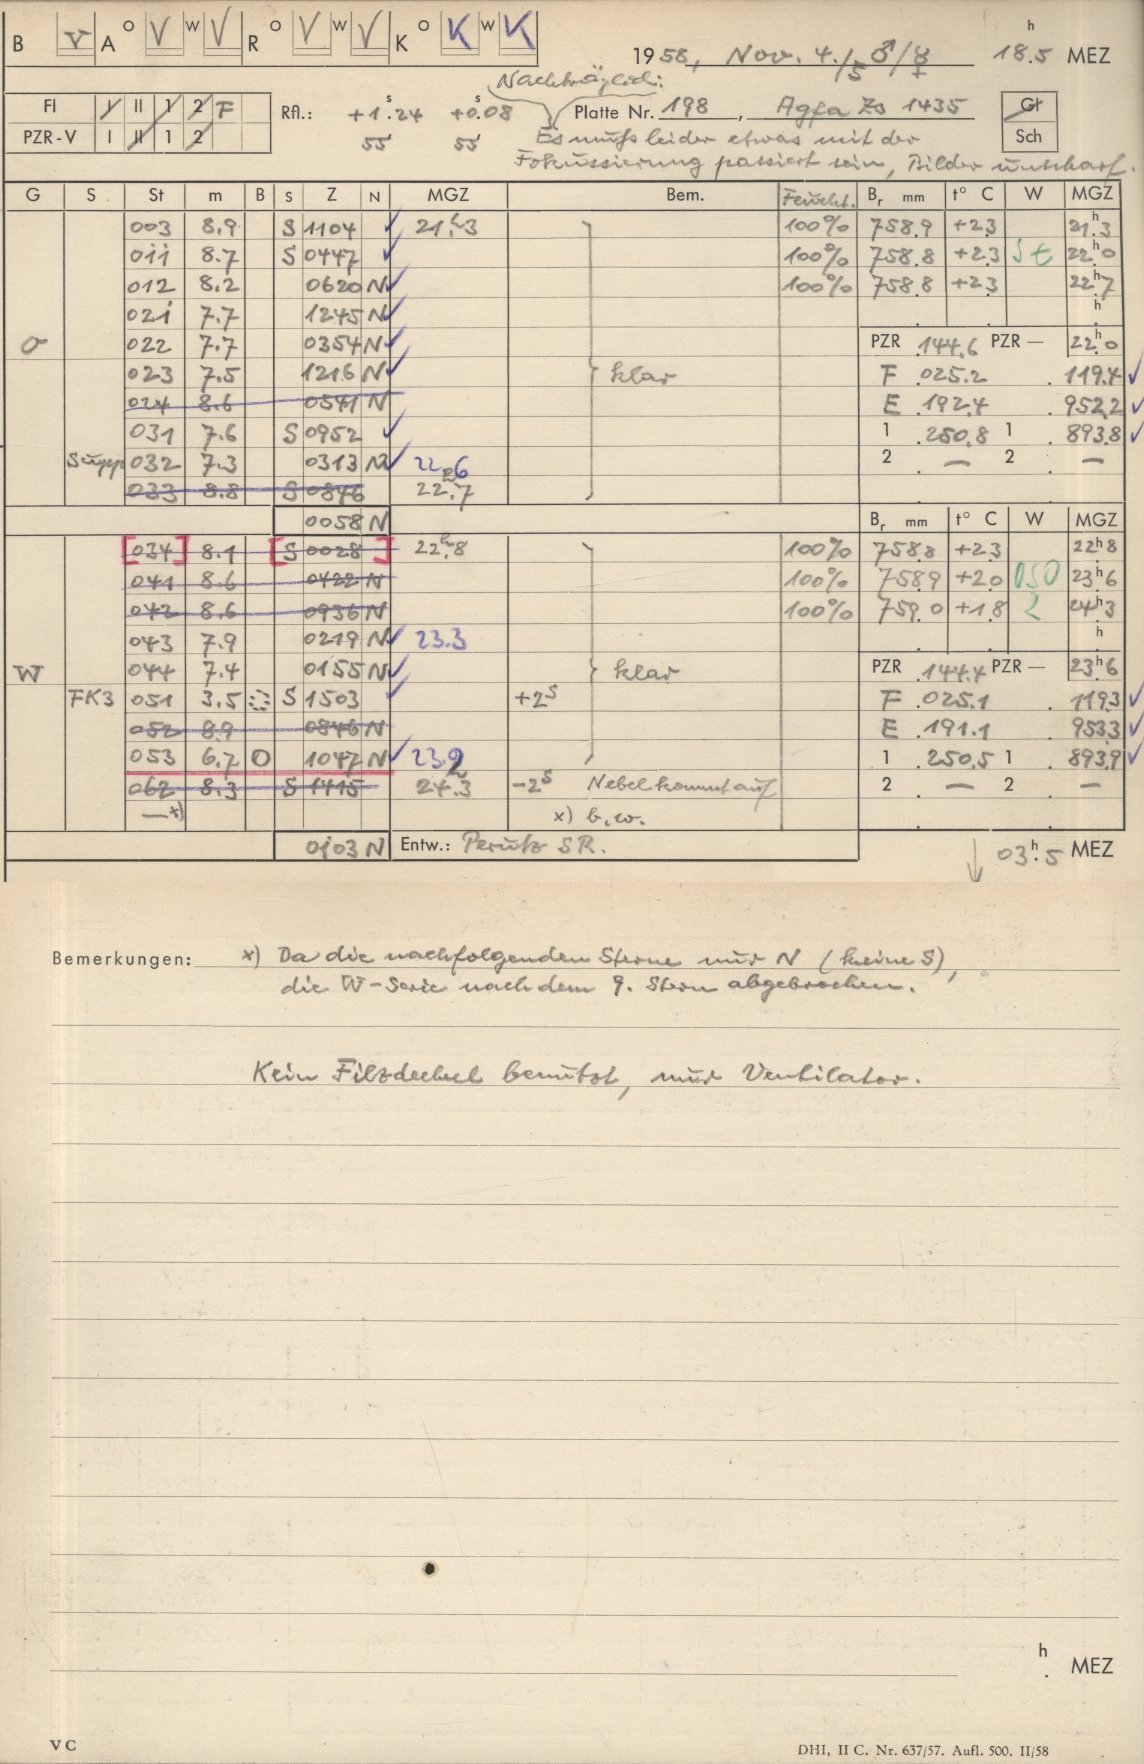 B V A O V W V R O V W V K O K W K
1958, Nov. 4./5 ♂/☿ 18.h5 MEZ
Nachträglich:
FI I II 1 2 F Rfl.: +1.s24 +0.s08 Platte Nr. 198, Agfa Zs 1435 Gl
PZR-V I II 1 2 55 55 Es muß leider etwas mit der Sch
Fokussierung passiert sein, Bilder unscharf.
G S St m B S Z N MGZ Bem. Feucht. Br mm t° C W MGZ
003 8.9 S 1104 ✓ 21.h3 100% 758.9 +2.3 21.h3
011 8.7 S 0447 ✓ 100% 758.8 +2.3 St 22.h0
012 8.2 0620 N ✓ 100% 758.8 +2.3 22.h7
021 7.7 1245 N ✓ h
O 022 7.7 0354 N ✓ PZR 144.6 PZR — 22.h0
023 7.5 1216 N ✓ klar F 025.2 119.4 ✓
024 8.6 0541 N E 192.4 952.2 ✓
031 7.6 S 0952 ✓ 1 250.8 1 893.8 ✓
Supp 032 7.3 0313 N ✓ 22.6 2 — 2 —
033 8.8 S 0846 22.h7
0058 N Br mm t° C W MGZ
[034] 8.1 [S 0028] 22.h8 100% 758.8 +2.3 22h8
041 8.6 0422 N 100% 758.9 +2.0 OSO 23h6
042 8.6 0936 N 100% 759.0 +1.8 2 24h3
043 7.9 0219 N ✓ 23.3 h
W 044 7.4 0155 N ✓ klar PZR 144.4 PZR — 23h6
FK3 051 3.5 S 1503 ✓ +2s F 025.1 119.3 ✓
052 8.9 0846 N E 191.1 953.3 ✓
053 6.7 O 1047 N ✓ 23.9 1 250.5 1 893.9 ✓
062 8.3 S 1415 24.h3 -2s Nebel kommt auf 2 — 2 —
— x) x) b.w.
0103 N Entw.: Perutz SR. 03.h5 MEZ
Bemerkungen: x) Da die nachfolgenden Sterne nur N (keine S),
die W-Serie nach dem 9. Stern abgebrochen.
Kein Filzdeckel benutzt, nur Ventilator.
h . MEZ
VC DHI, II C. Nr. 637/57. Aufl. 500. II/58